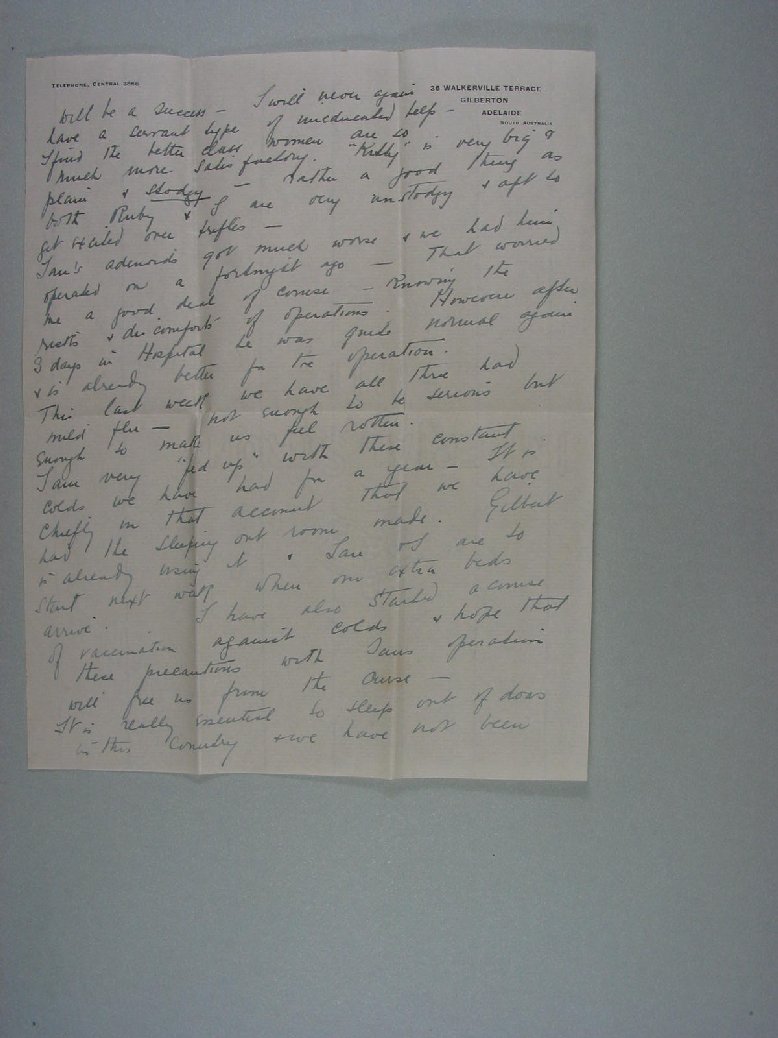 TELEPHONE, CENTRAL
36 WALKERVILLE TERRACE
GILBERTON
ADELAIDE
SOUTH AUSTRALIA
will be a success – I will never again
have a servant type of uneducated help –
I find the better class women are so
much more satisfactory. "Kelly" is very big &
plain & stodgy – rather a good thing as
both Ruby & I are very unstodgy & apt to
get excited over trifles –
Ian's adenoids got much worse & we had him
operated on a fortnight ago – That worried
me a good deal of course – knowing the
risks & discomforts of operations. However after
3 days in Hospital he was quite normal again
& is already better for the operation.
This last week we have all three had
mild flu – not enough to be serious but
enough to make us feel rotten.
I am very "fed up" with these constant
colds we have had for a year – It is
chiefly on that account that we have
had the sleeping out room made. Gilbert
is already using it & Ian & I are to
start next week when our extra beds
arrive. I have also started a course
of vaccination against colds & hope that
these precautions with Ians operation
will free us from the curse –
It is really essential to sleep out of doors
in this country & we have not been